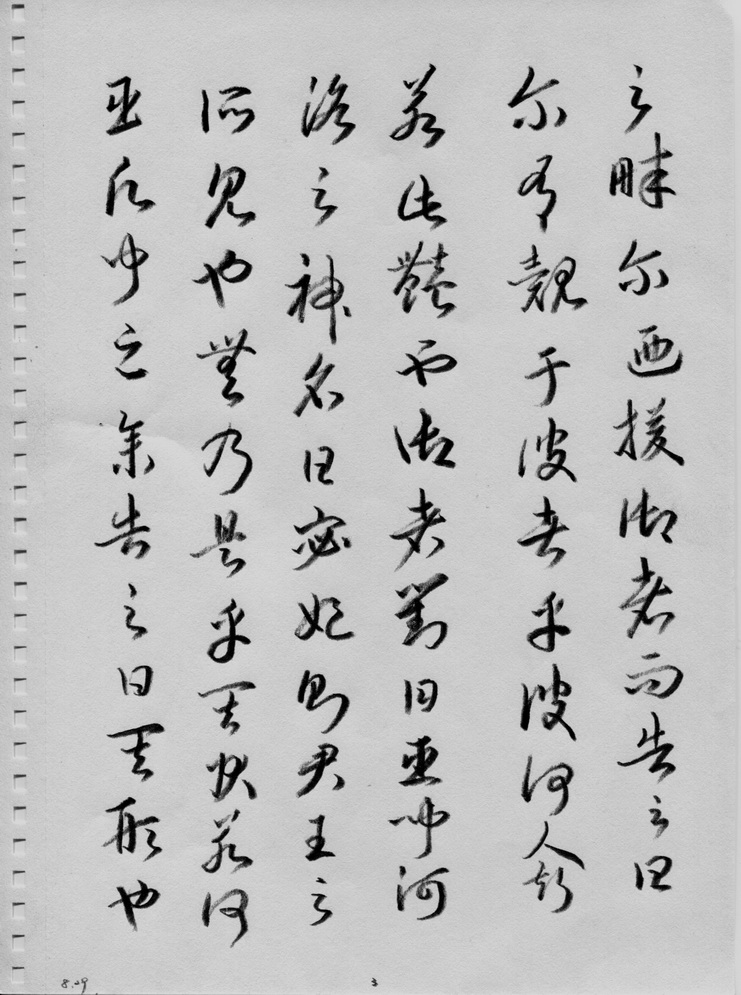 之畔尔迺援御者而告之曰
尔有覿于彼者乎彼何人斯
若此豔也御者對曰臣聞河
洛之神名曰宓妃則君王之
所見也無乃是乎其狀若何
臣願聞之余告之曰其形也
8.29
3